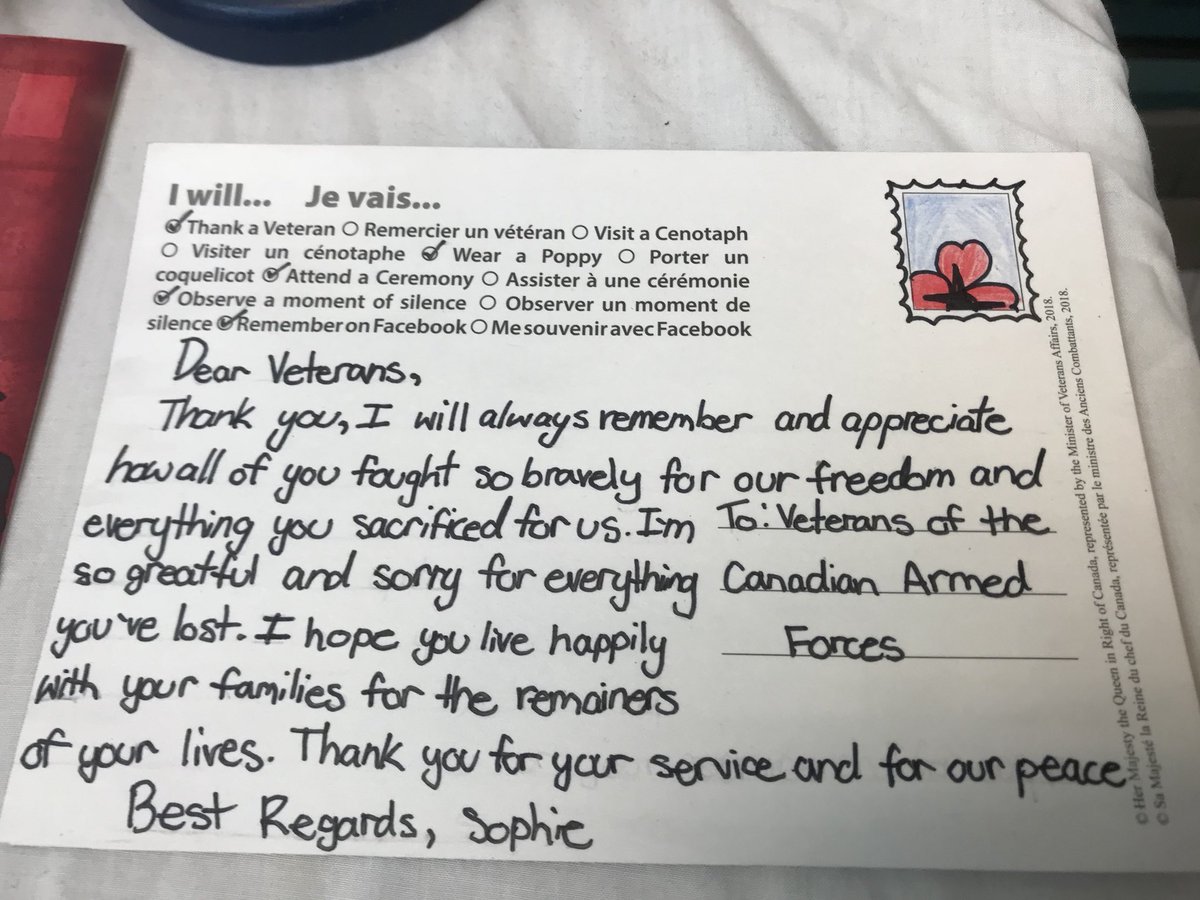 I will... Je vais...
Thank a Veteran O Remercier un vétéran O Visit a Cenotaph
O Visiter un cénotaphe Wear a Poppy O Porter un
coquelicot Attend a Ceremony O Assister à une cérémonie
Observe a moment of silence O Observer un moment de
silence Remember on Facebook O Me souvenir avec Facebook
Dear Veterans,
Thank you, I will always remember and appreciate
how all of you fought so bravely for our freedom and
everything you sacrificed for us. I'm
so greatful and sorry for everything
you've lost. I hope you live happily
with your families for the remainers
of your lives. Thank you for your service and for our peace
Best Regards, Sophie
To: Veterans of the
Canadian Armed
Forces
© Her Majesty the Queen in Right of Canada, represented by the Minister of Veterans Affairs, 2018.
© Sa Majesté la Reine du chef du Canada, représentée par le ministre des Anciens Combattants, 2018.